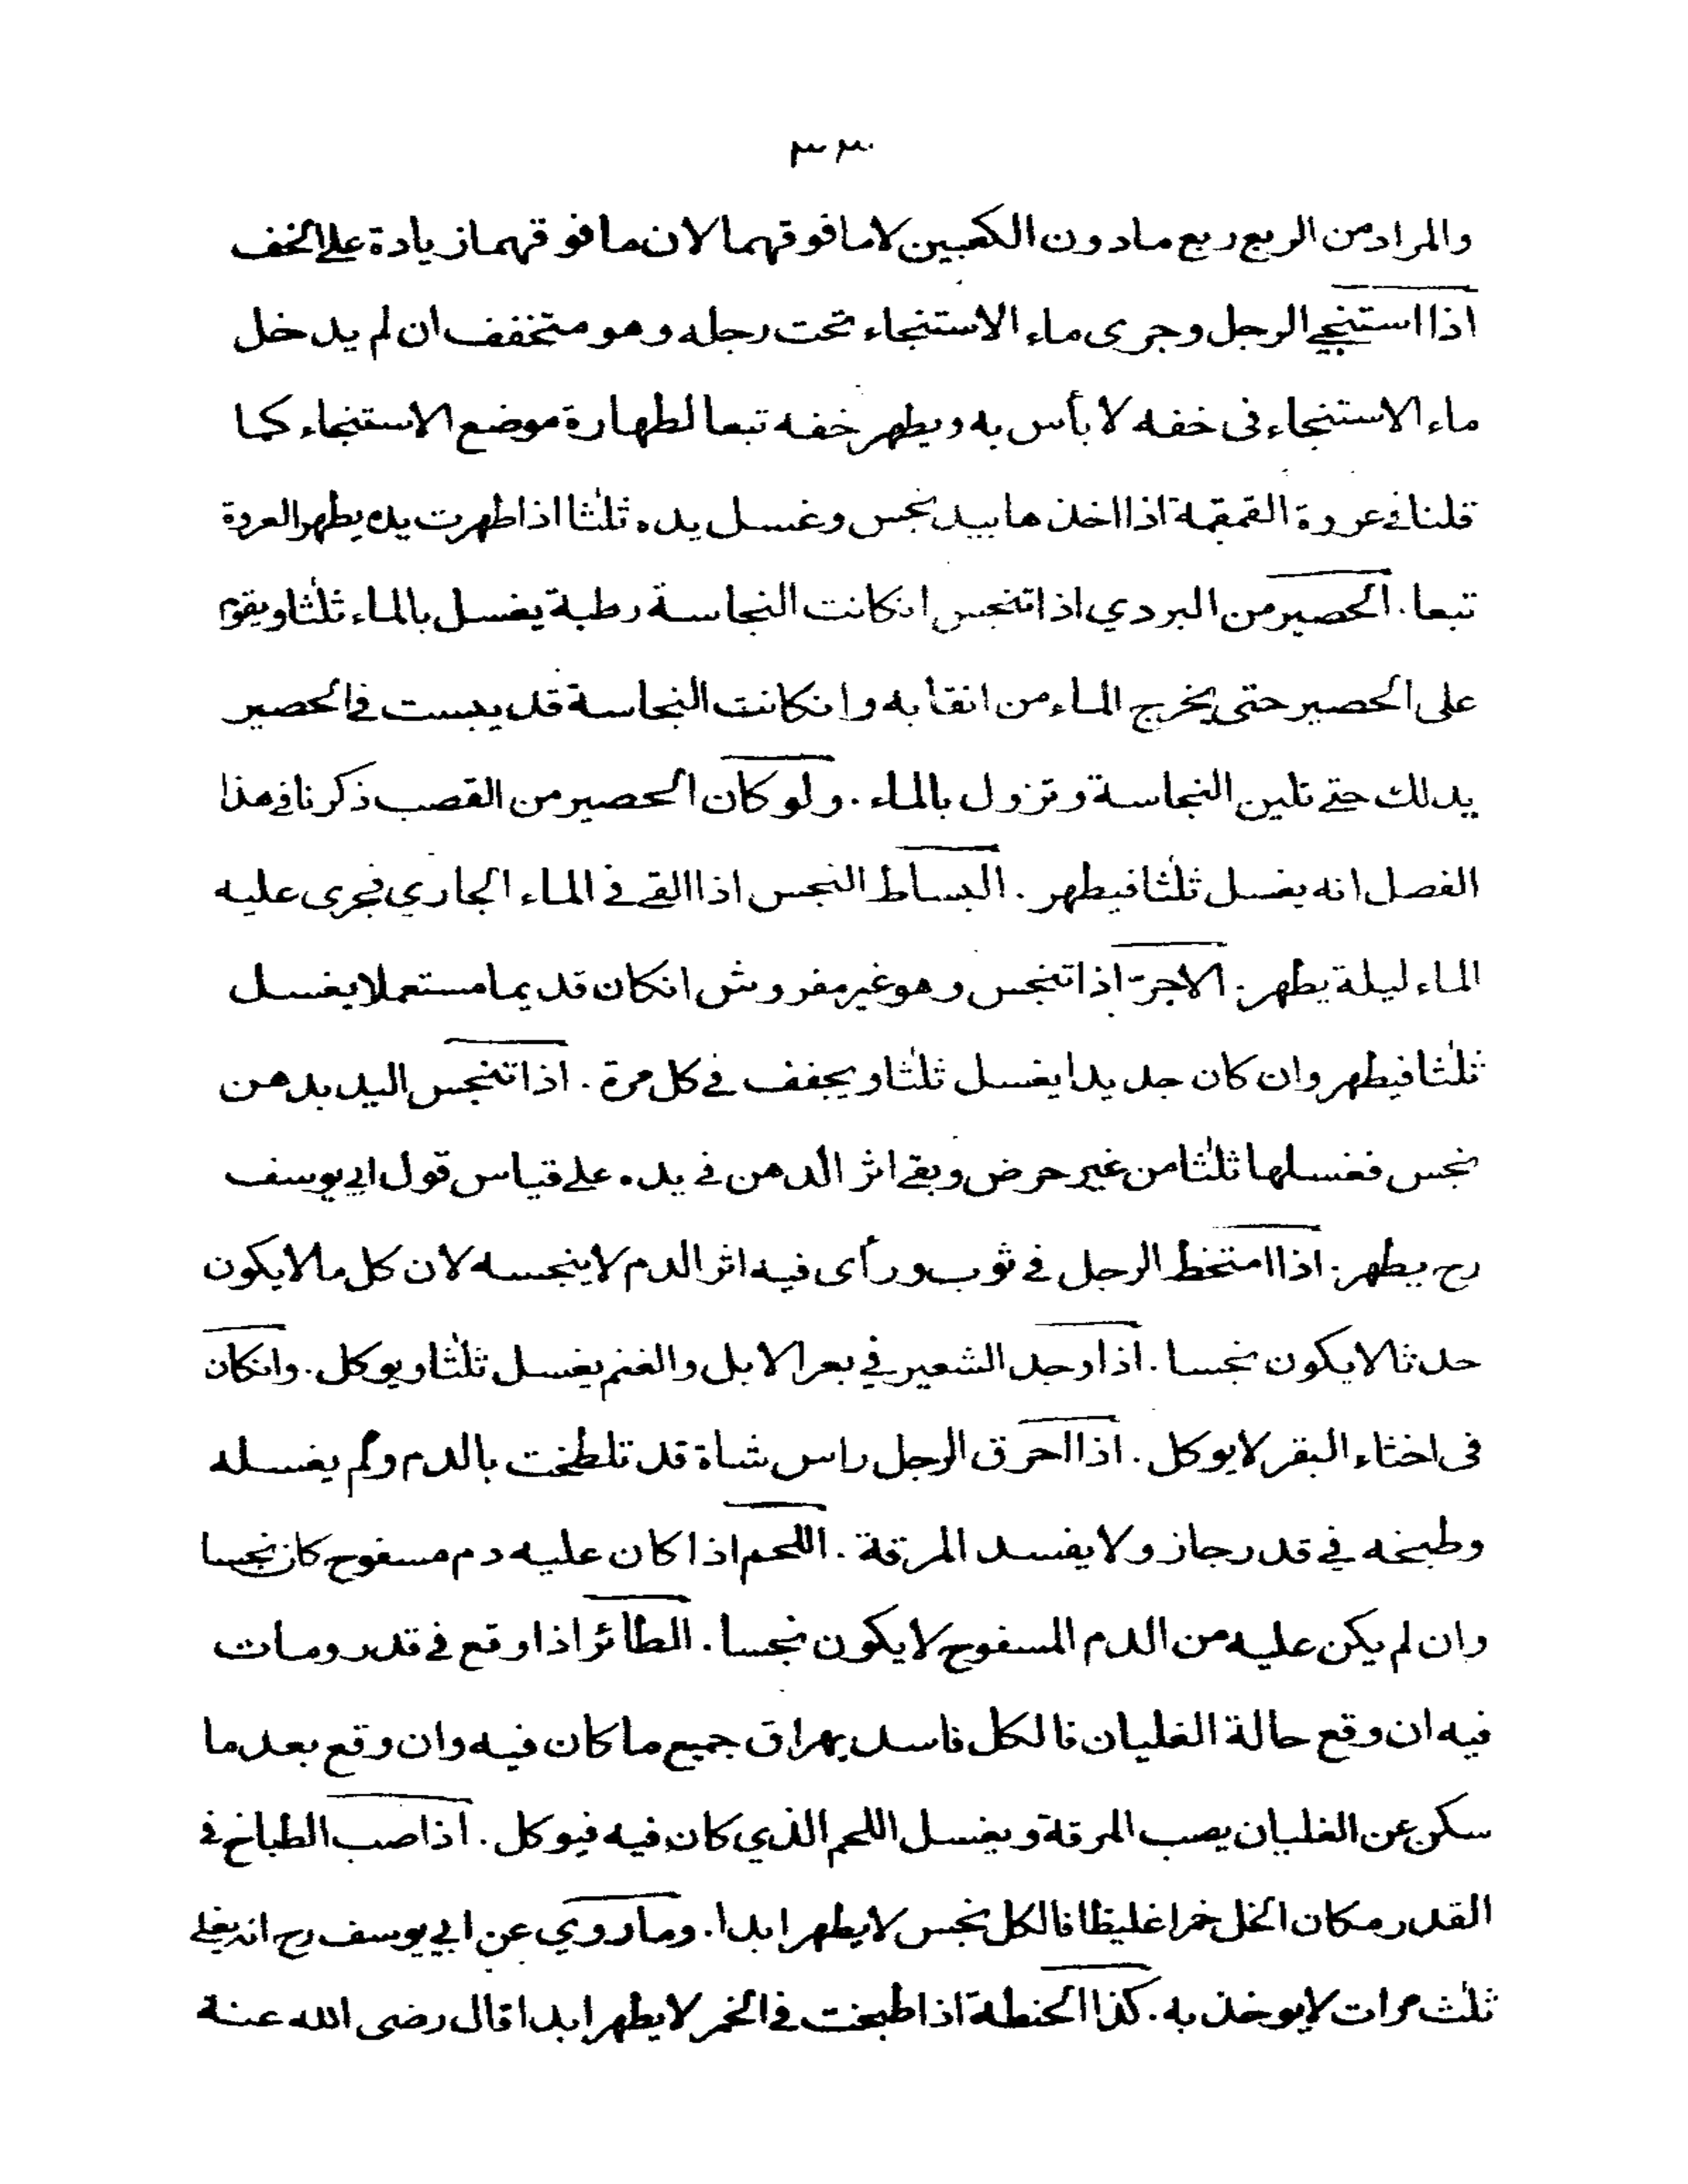 ٣٣
والمراد من الربع ربع مادون الكعبين لا مافوقهما لان مافوقهما زيادة على الخف
اذا استنجى الرجل وجرى ماء الاستنجاء تحت رجله وهو متخفف ان لم يدخل
ماء الاستنجاء فى خفه لا بأس به ويطهر خفه تبعا لطهارة موضع الاستنجاء كما
قلنا فى عروة القمقمة اذا اخذها بيد نجس وغسل يده ثلٰثا اذا طهرت يده يطهر العروة
تبعا. الحصير من البردي اذا تنجس انكانت النجاسة رطبة يغسل بالماء ثلٰثا ويقوم
على الحصير حتى يخرج الماء من انقابه وانكانت النجاسة قد يبست في الحصير
يدلك حتى تلين النجاسة وتزول بالماء. ولو كان الحصير من القصب ذكرنا في هذا
الفصل انه يغسل ثلٰثا فيطهر. البساط النجس اذا القي في الماء الجاري فجرى عليه
الماء ليلة يطهر. الاجر اذا تنجس وهو غير مفروش انكان قديما مستعملا يغسل
ثلٰثا فيطهر وان كان جديدا يغسل ثلٰثا ويجفف في كل مرة. اذا تنجس اليد بدهن
نجس فغسلها ثلٰثا من غير حرض وبقي اثر الدهن في يده على قياس قول ابي يوسف
رح يطهر. اذا امتخط الرجل في ثوب ورأى فيه اثر الدم لا ينجسه لان كل ما لا يكون
حدثا لا يكون نجسا. اذا وجد الشعير في بعر الابل والغنم يغسل ثلٰثا ويوكل. وانكان
فى اخثاء البقر لا يوكل. اذا احرق الرجل راس شاة قد تلطخت بالدم ولم يغسله
وطبخه في قدر جاز ولا يفسد المرقة. اللحم اذا كان عليه دم مسفوح كان نجسا
وان لم يكن عليه من الدم المسفوح لا يكون نجسا. الطائر اذا وقع في قدر ومات
فيه ان وقع حالة الغليان فالكل فاسد يهراق جميع ما كان فيه وان وقع بعد ما
سكن عن الغليان يصب المرقة ويغسل اللحم الذي كان فيه فيوكل. اذا صب الطباخ في
القدر مكان الخل خمرا غليظا فالكل نجس لا يطهر ابدا. وما روي عن ابي يوسف رح انه يغلي
ثلٰث مرات لا يوخذ به. كذا الحنطة اذا طبخت في الخمر لا يطهر ابدا قال رضى الله عنه